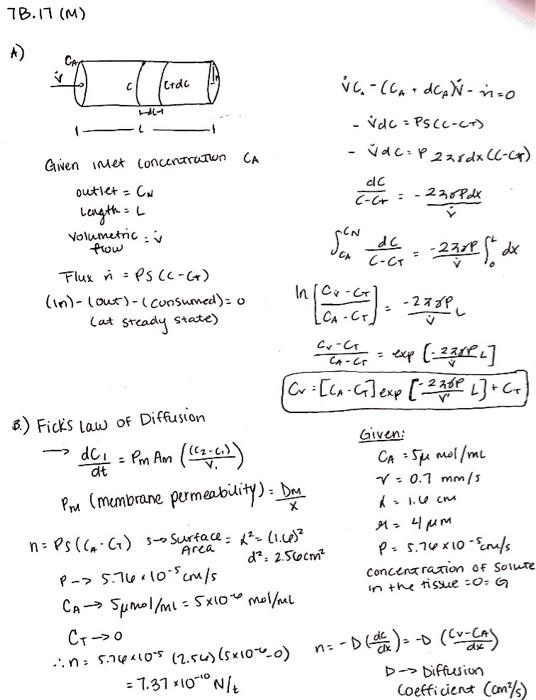 7B.17 (M)
A)
CA
V̇
C
C+dC
dL
L
Given inlet concentration CA
outlet = CN
Length = L
Volumetric flow = V̇
Flux ṅ = PS(C-CT)
(in) - (out) - (consumed) = 0
(at steady state)
V̇C. - (CA + dCA)V̇ - ṅ = 0
- V̇dC = PS(C-CT)
- V̇dC = P 2πrdx(C-CT)
dC/C-CT = -2πrPdx/V̇
∫CA^CN dC/C-CT = -2πrP/V̇ ∫0^L dx
ln[CV-CT/CA-CT] = -2πrP/V̇ L
CV-CT/CA-CT = exp[-2πrP/V̇ L]
CV = [CA-CT]exp[-2πrP/V̇ L]+CT
B.) Fick's Law of Diffusion
→ dC1/dt = Pm Am ((C2-C1)/V1)
Pm (membrane permeability) = Dm/x
n = PS(CA-CT) S→ Surface Area = d² = (1.6)²
d² = 2.56cm²
P → 5.76×10^-5 cm/s
CA → 5μmol/mL = 5×10^-6 mol/mL
CT → 0
∴ n = 5.76×10^-5 (2.56)(5×10^-6-0)
= 7.37×10^-10 N/t
Given:
CA = 5μ mol/mL
V = 0.7 mm/s
L = 1.6 cm
r = 4 μm
P = 5.76 x 10^-5 cm/s
concentration of solute
in the tissue = 0 = CT
n = -D(dC/dx) = -D (CV-CA)/dx
D → Diffusion
coefficient (cm²/s)